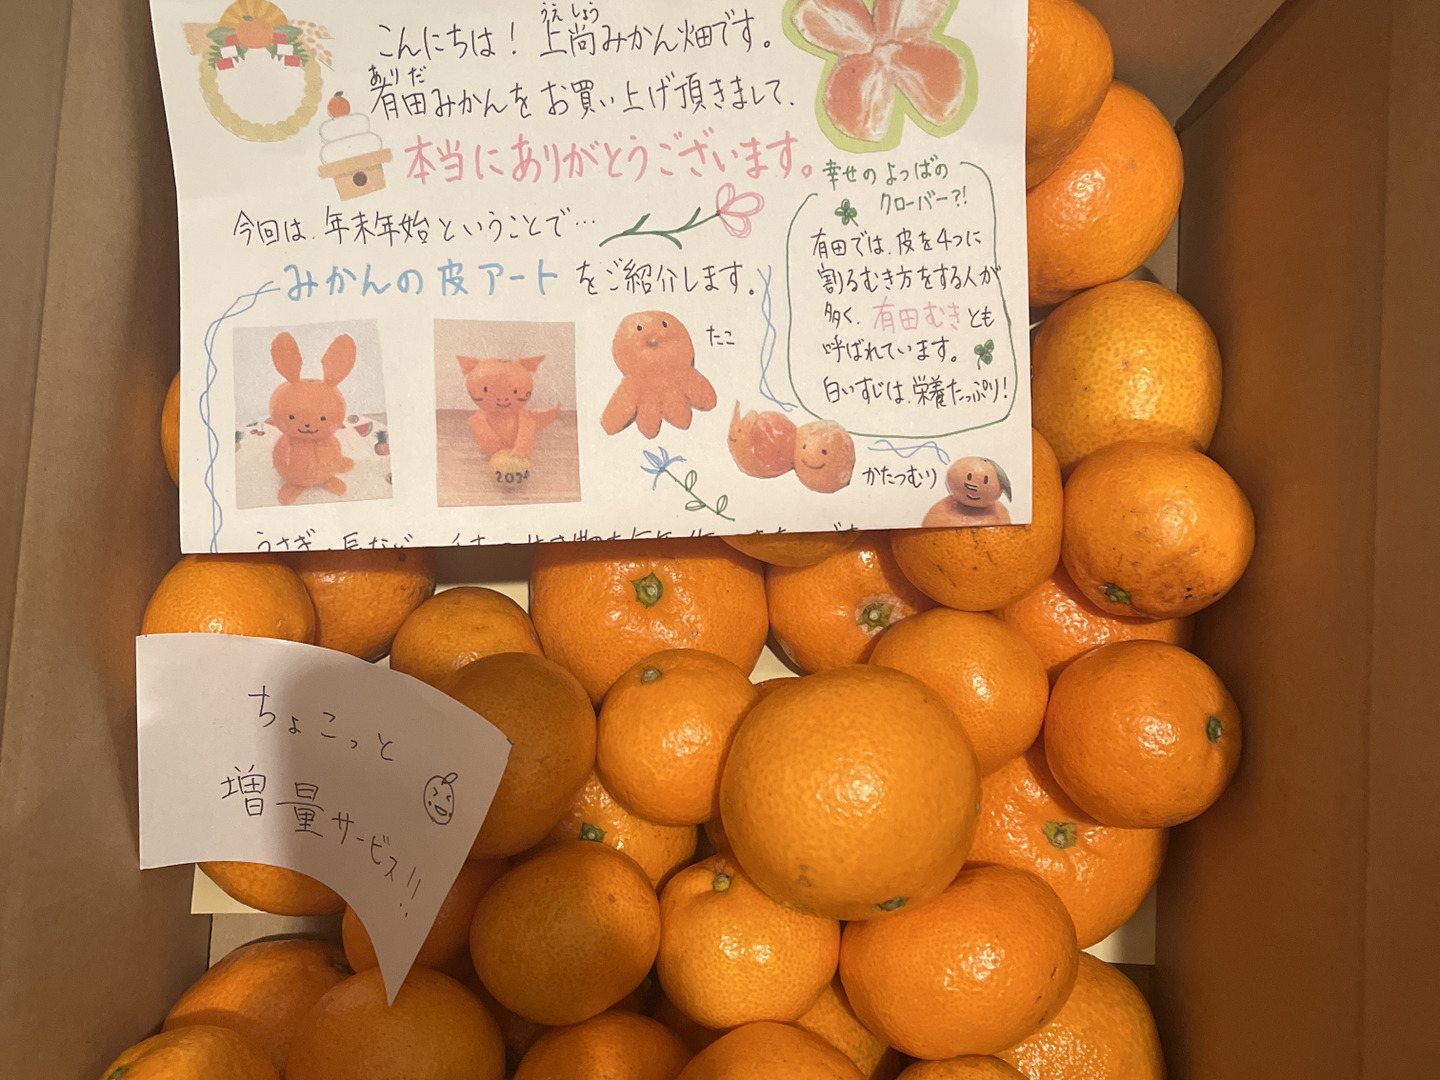 うえしょう
こんにちは！上尚みかん畑です。
ありだ
有田みかんをお買い上げ頂きまして、
本当にありがとうございます。
今回は、年末年始ということで…
みかんの皮アートをご紹介します。
幸せのよつばの
クローバー？！
有田では、皮を4つに
割るむき方をする人が
多く、有田むきとも
呼ばれています。
白いすじは、栄養たっぷり！
たこ
2024
かたつむり
うさぎ
ちょこっと
増量サービス!!